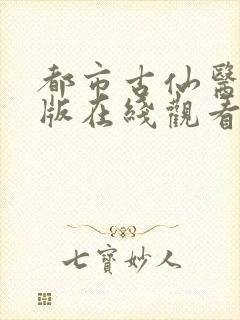 都市古仙醫
版在綫觀看
七寶妙人